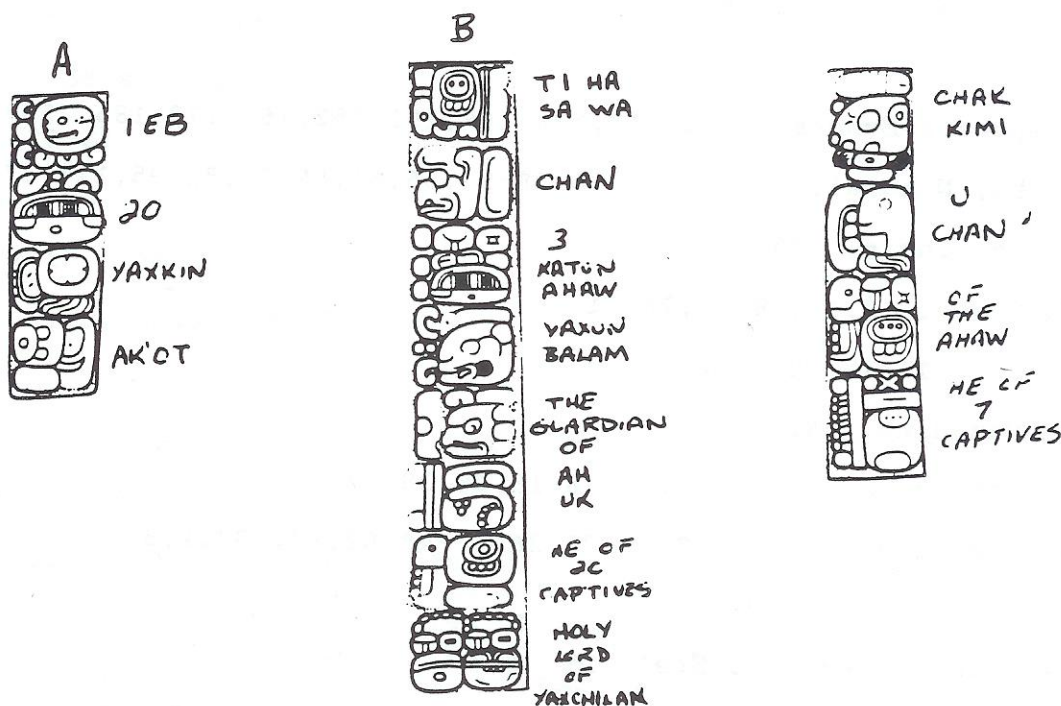 A
1 EB
20
YAXKIN
AK'OT
B
TI HA
SA WA
CHAN
3
KATUN
AHAW
YAXUN
BALAM
THE
GUARDIAN
OF
AH
UK
HE OF
20
CAPTIVES
HOLY
LORD
OF
YAXCHILAN
CHAK
KIMI
U
CHAN
OF
THE
AHAW
HE OF
7
CAPTIVES